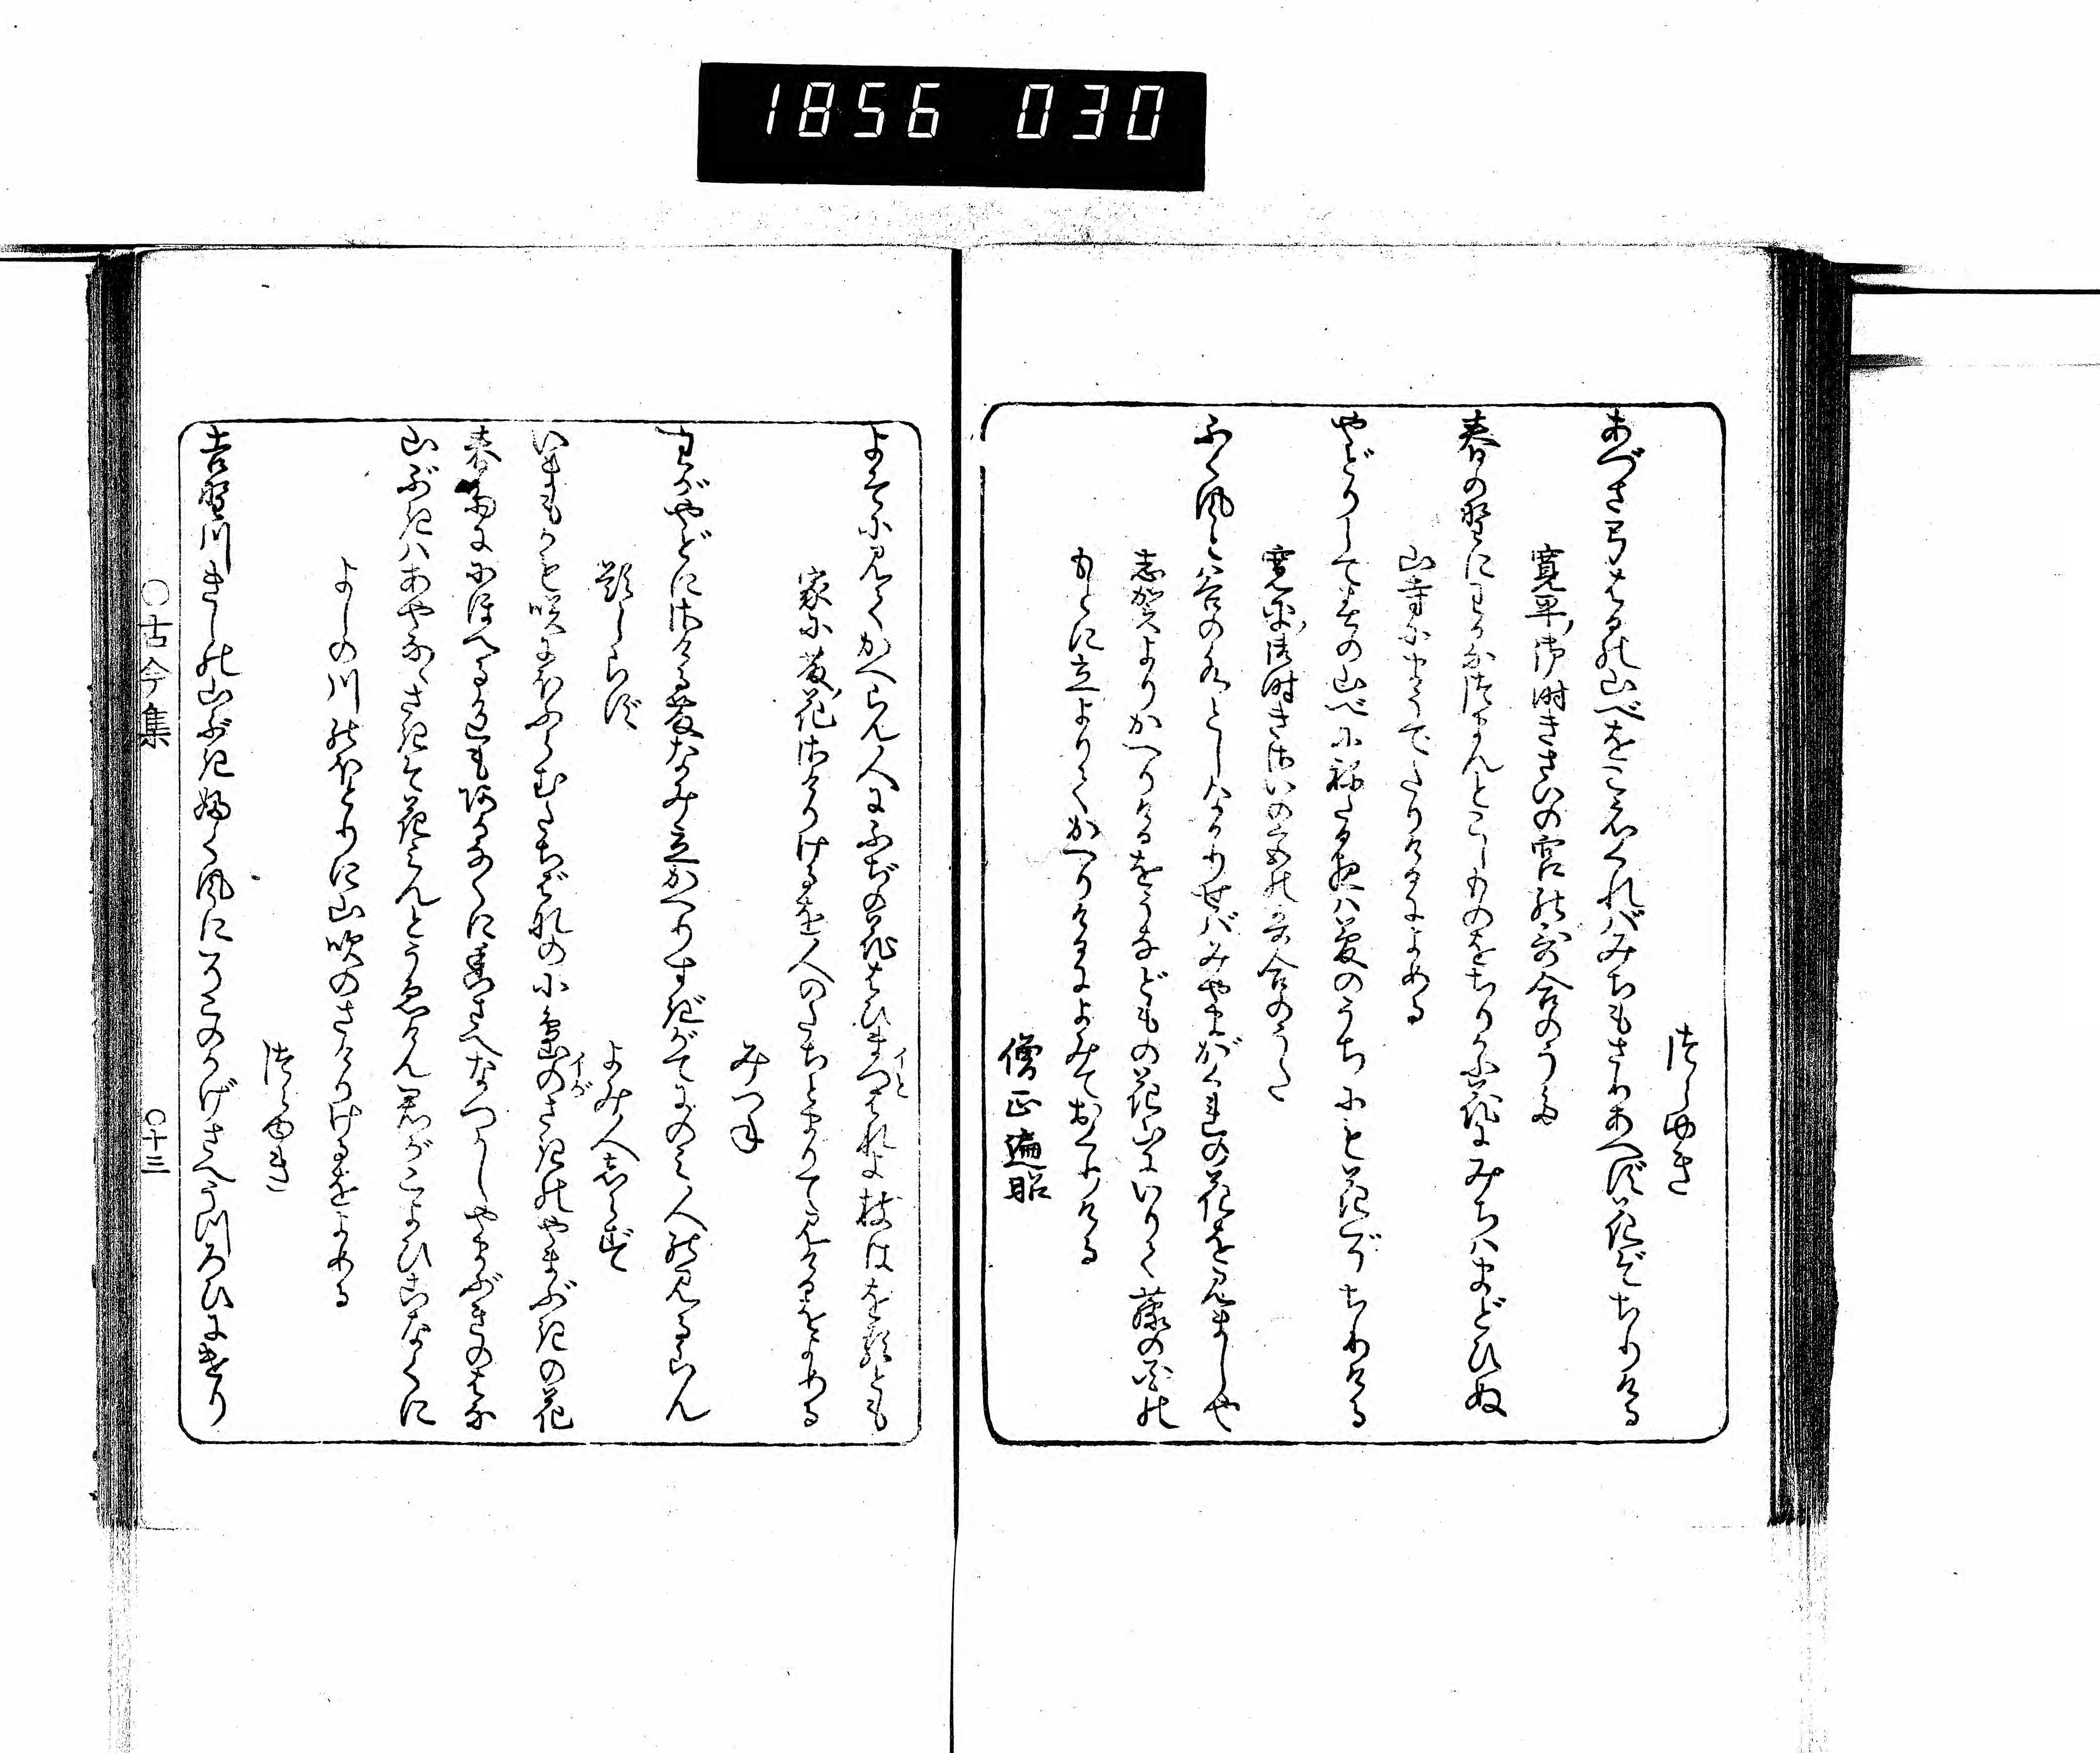 1856 030
つらゆき
あづさ弓はるの山べをこえくればみちもさりあへず花ぞちりける
寛平御時きさいの宮の歌合のうた
春の野にわかなつまんとこしものをちりかふ花にみちはまどひぬ
山寺にまうでたりけるによめる
やどりして春の山べにねたる夜は夢のうちにも花ぞちりける
寛平御時きさいの宮の歌合のうた
ふく風と谷の水としなかりせばみやまがくれの花を見ましや
志賀よりかへりけるをうなどもの花山にいりて藤の花の
もとに立よりてかへりけるによみておくりける
僧正遍昭
よそに見てかへらん人にふぢの花はひまつはれよ枝はをるとも
イと
家に藤花さけりけるを人のたちとまりて見けるをよめる
みつね
わがやどにさける藤なみ立かへりすぎがてにのみ人の見るらん
題しらず
よみ人しらず
いまもかも咲にほふらむたちばなの小島のさきのやまぶきの花
イが
春雨ににほへる色もあかなくに香さへなつかしやまぶきのはな
山ぶきはあやなゝさきそ花みんとうゑけん君がこよひこなくに
よしの川のほとりに山吹のさけりけるをよめる
つらゆき
吉野川きしの山ぶきふく風にそこのかげさへうつろひにけり
○古今集
○十三